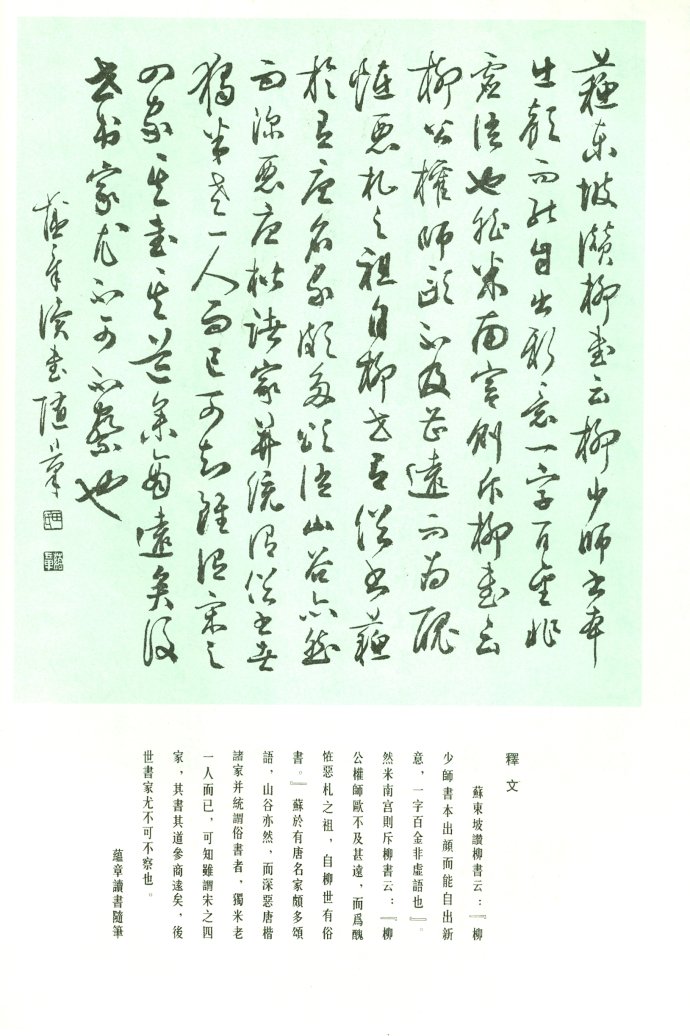 蘓東坡讚柳書云柳少師書本
出顔而能自出新意一字百金非
虚語也然米南宫則斥柳書云
柳公權師歐不及甚遠而為醜
恠惡札之祖自柳世有俗書蘓
於有唐名家頗多頌語山谷亦然
而深惡唐楷諸家并統謂俗書者
獨米老一人而已可知雖謂宋之
四家其書其道參商遠矣後
世書家尤不可不察也
蘊章讀書隨筆
釋文
蘇東坡讚柳書云：『柳
少師書本出顔而能自出新
意，一字百金非虛語也』。
然米南宫則斥柳書云：『柳
公權師歐不及甚遠，而爲醜
恠惡札之祖，自柳世有俗
書。』蘇於有唐名家頗多頌
語，山谷亦然，而深惡唐楷
諸家并統謂俗書者，獨米老
一人而已，可知雖謂宋之四
家，其書其道參商遠矣，後
世書家尤不可不察也。
蘊章讀書隨筆